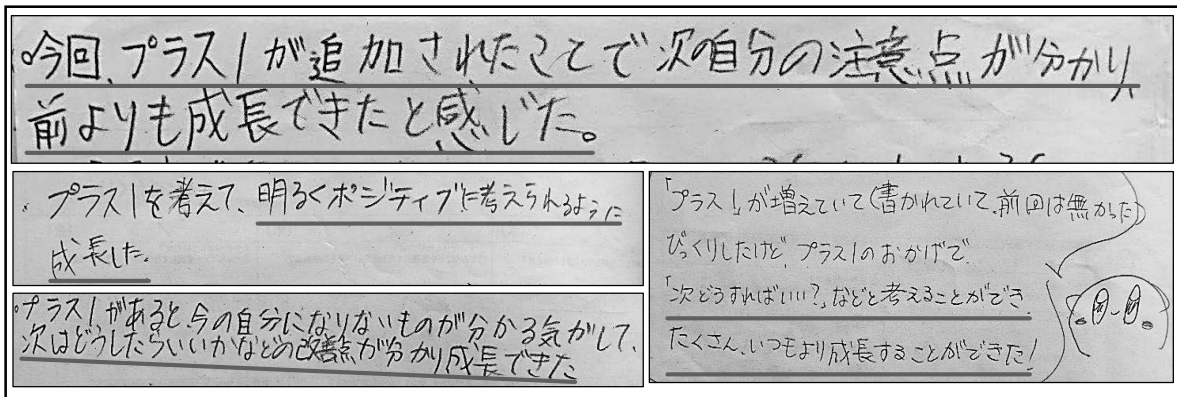 ・今回、プラス1が追加されたことで次の自分の注意点が分かり、
前よりも成長できたと感じた。
・プラス1を考えて、明るくポジティブに考えられるように
成長した。
・プラス1があると、今の自分になりないものが分かる気がして、
次はどうしたらいいかなどの改善点が分かり成長できた
「プラス1」が増えていて(書かれていて、前回は無かった)
びっくりしたけど、プラス1のおかげで
「次どうすればいい?」などと考えることができ、
たくさん、いつもより成長することができた!